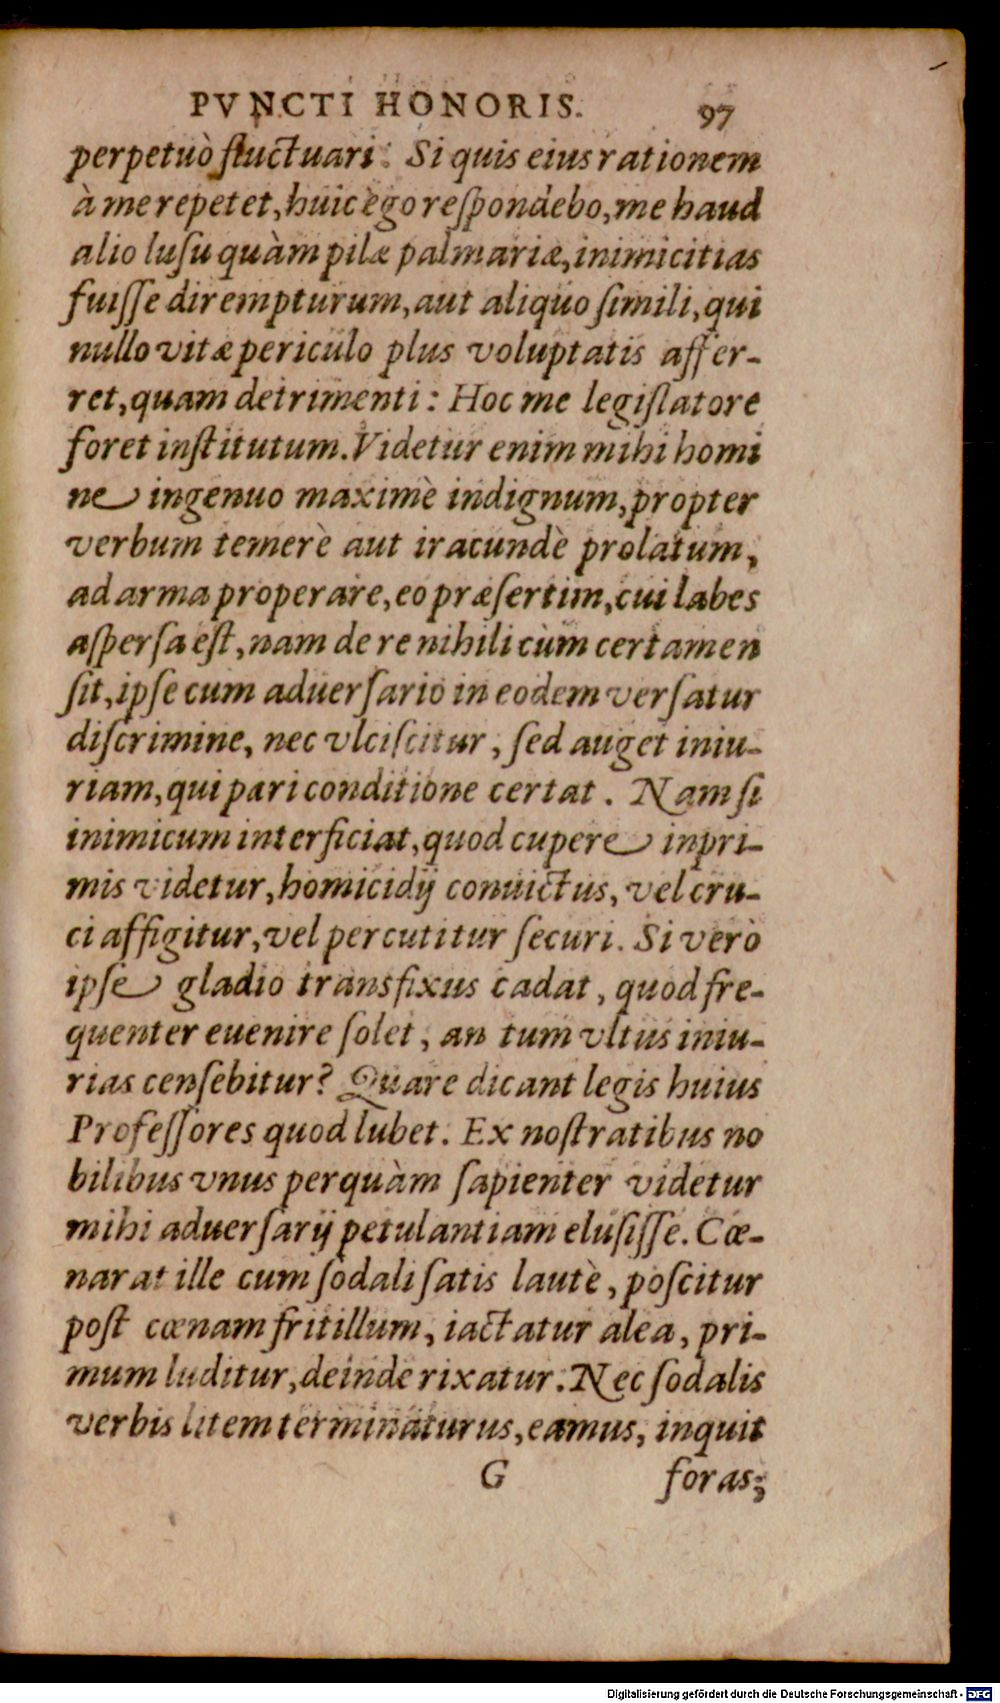 PVNCTI HONORIS. 97
perpetuò fluctuari. Si quis eius rationem
à me repetet, huic ego reſpondebo, me haud
alio luſu quàm pilæ palmariæ, inimicitias
fuiſſe dirempturum, aut aliquo ſimili, qui
nullo vitæ periculo plus voluptatis affer-
ret, quam detrimenti: Hoc me legiſlatore
foret inſtitutum. Videtur enim mihi homi
ne ingenuo maximè indignum, propter
verbum temerè aut iracundè prolatum,
ad arma properare, eo præſertim, cui labes
aſperſa eſt, nam de re nihili cùm certamen
ſit, ipſe cum aduerſario in eodem verſatur
diſcrimine, nec vlciſcitur, ſed auget iniu-
riam, qui pari conditione certat. Nam ſi
inimicum interficiat, quod cupere inpri-
mis videtur, homicidij conuictus, vel cru-
ci affigitur, vel percutitur ſecuri. Si verò
ipſe gladio transfixus cadat, quod fre-
quenter euenire ſolet, an tum vltus iniu-
rias cenſebitur? Quare dicant legis huius
Profeſſores quod lubet. Ex noſtratibus no
bilibus vnus perquàm ſapienter videtur
mihi aduerſarij petulantiam eluſiſſe. Cœ-
narat ille cum ſodali ſatis lautè, poſcitur
poſt cœnam fritillum, iactatur alea, pri-
mum luditur, deinde rixatur. Nec ſodalis
verbis litem terminaturus, eamus, inquit
G foras;
Digitalisierung gefördert durch die Deutsche Forschungsgemeinschaft - DFG